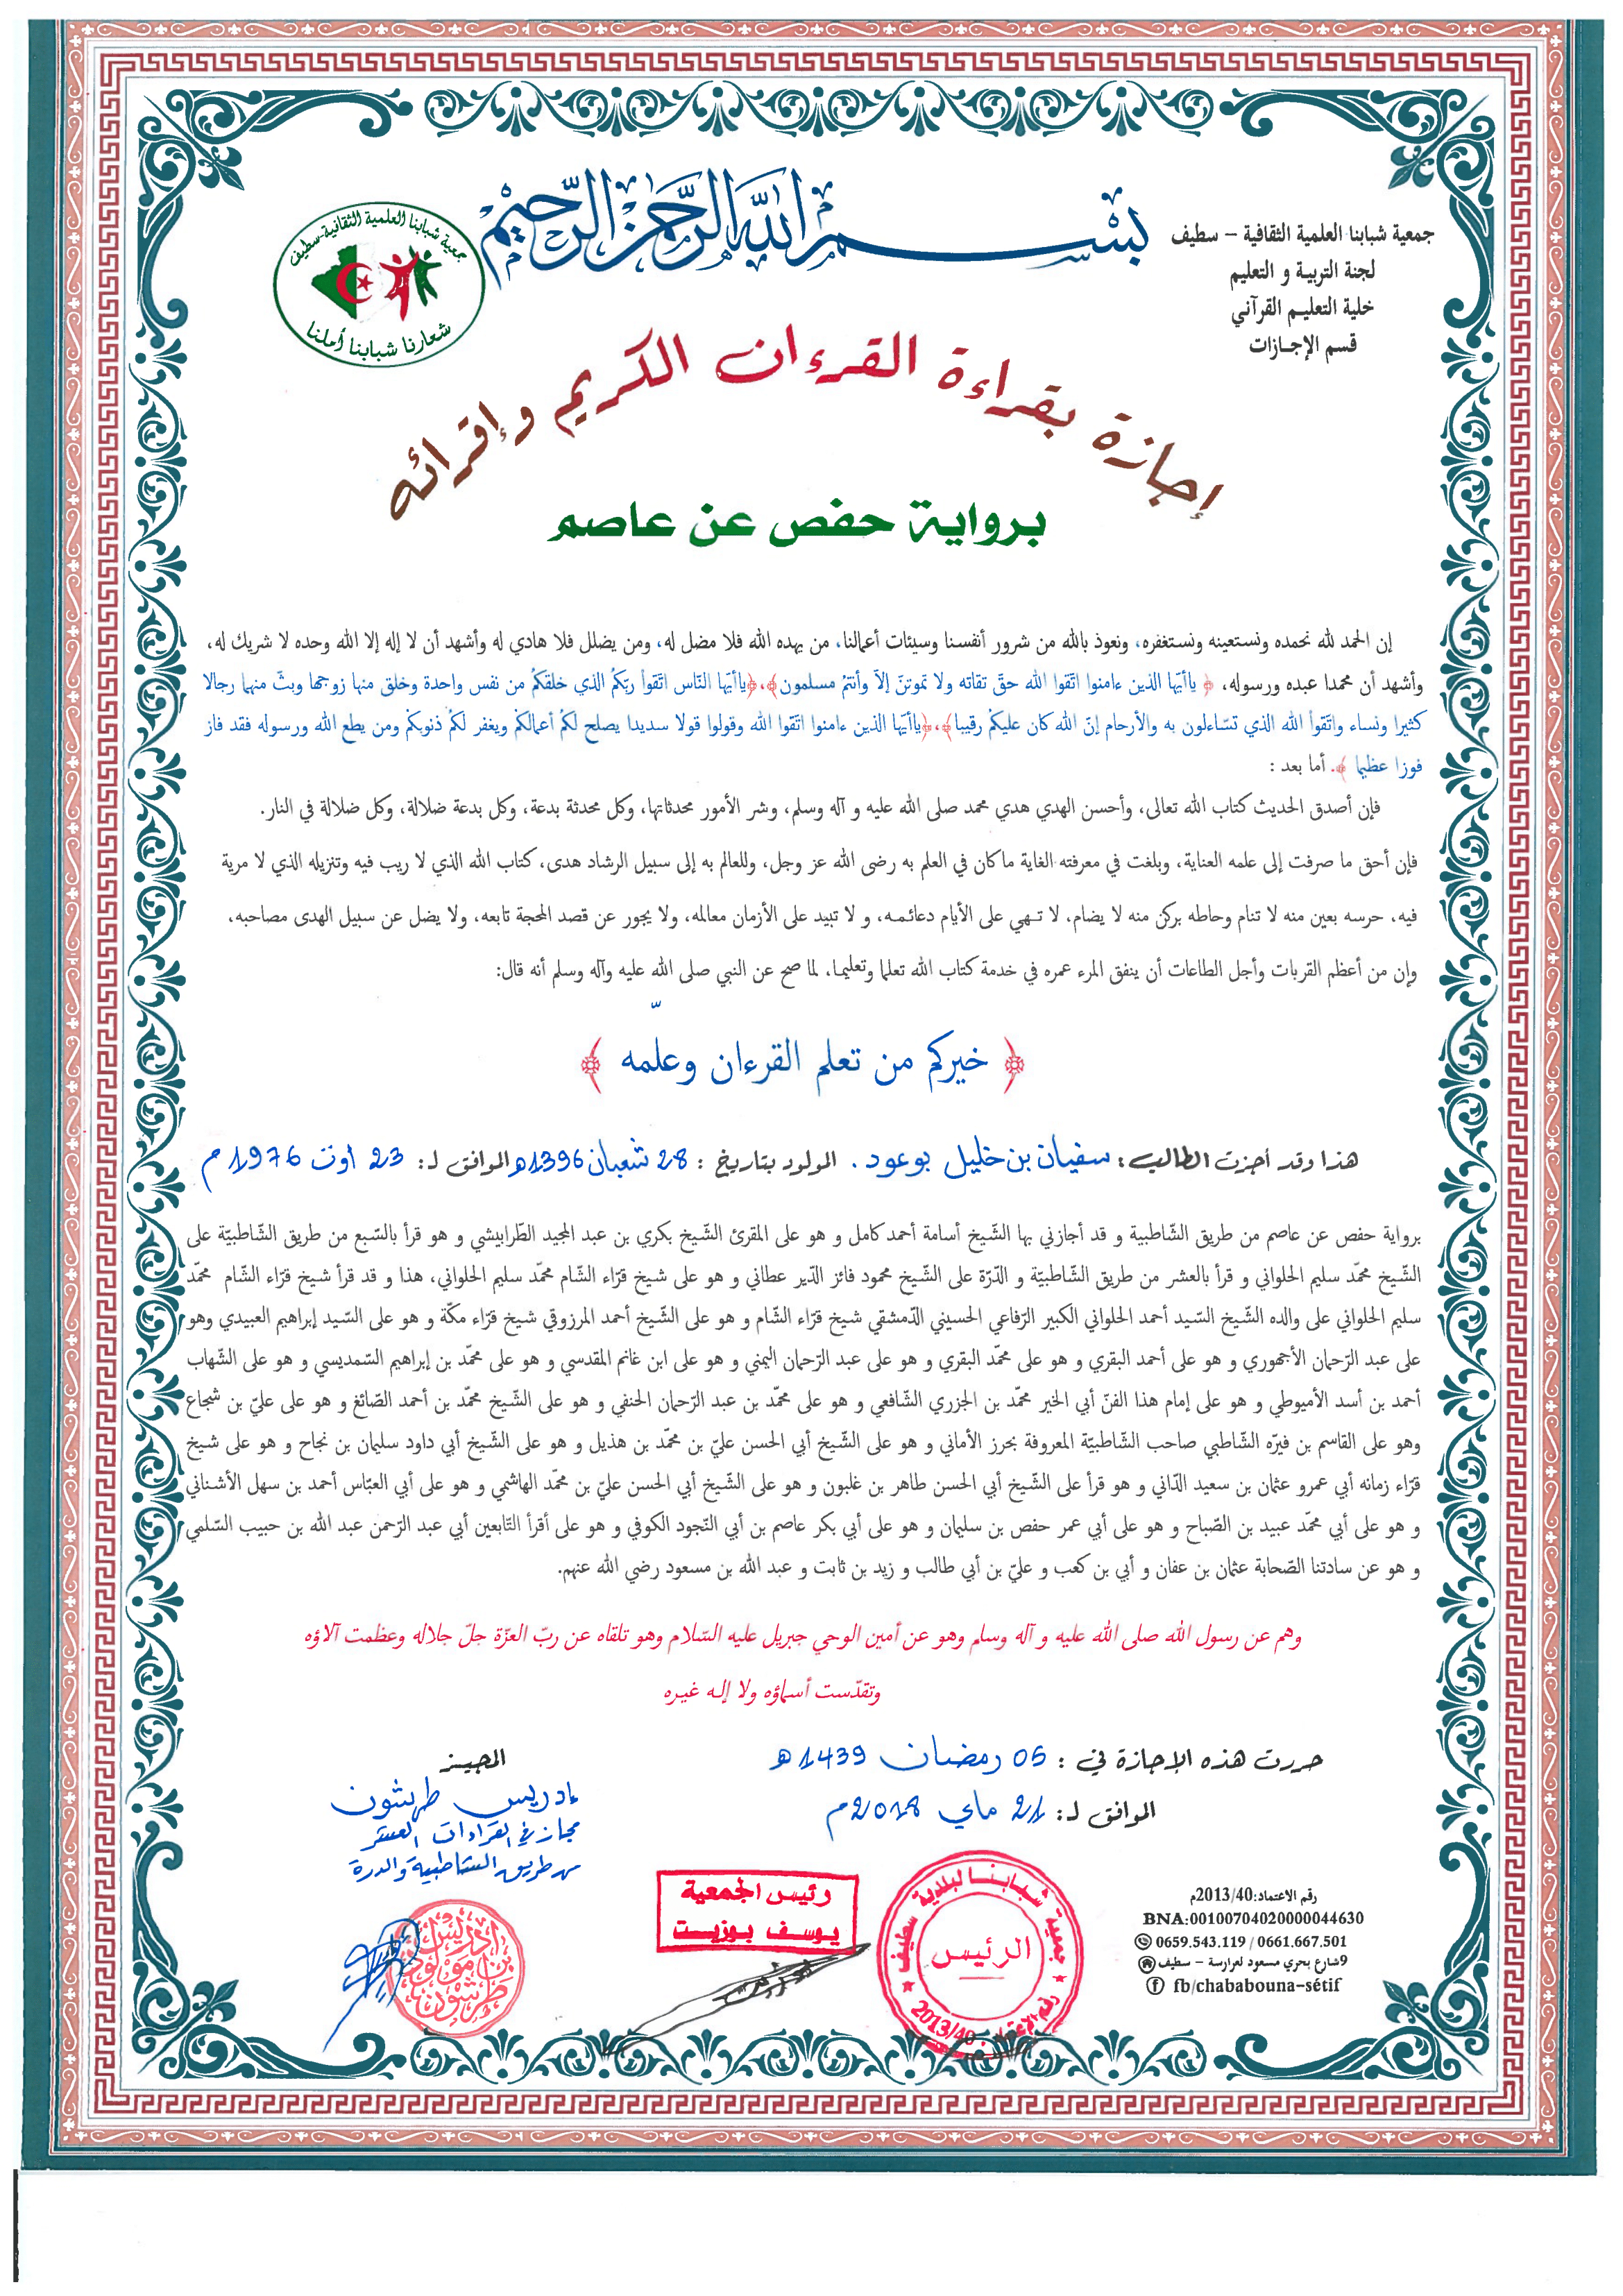 بسم الله الرحمن الرحيم
جمعية شبابنا العلمية الثقافية – سطيف
لجنة التربية و التعليم
خلية التعليم القرآني
قسم الإجازات
جمعية شبابنا العلمية الثقافية-سطيف
شعارنا شبابنا أملنا
إجازة بقراءة القرءان الكريم وإقرائه
برواية حفص عن عاصم
إن الحمد لله نحمده ونستعينه ونستغفره، ونعوذ بالله من شرور أنفسنا وسيئات أعمالنا، من يهده الله فلا مضل له، ومن يضلل فلا هادي له وأشهد أن لا إله إلا الله وحده لا شريك له،
وأشهد أن محمدا عبده ورسوله، ﴿ ياأيّها الذين ءامنوا اتّقوا الله حقّ تقاته ولا تموتنّ إلاّ وأنتمُ مسلمون﴾،﴿ياأيّها النّاس اتّقواْ ربّكمُ الذي خلقكمُ من نفس واحدة وخلق منها زوجها وبثّ منهما رجالا
كثيرا ونساء واتّقواْ الله الذي تسّاءلون به والأرحام إنّ الله كان عليكمْ رقيبا﴾،﴿ياأيّها الذين ءامنوا اتّقوا الله وقولوا قولا سديدا يصلح لكمُ أعمالكمْ ويغفر لكمُ ذنوبكمْ ومن يطع الله ورسوله فقد فاز
فوزا عظيما ﴾. أما بعد :
فإن أصدق الحديث كتاب الله تعالى، وأحسن الهدي هدي محمد صلى الله عليه و آله وسلم، وشر الأمور محدثاتها، وكل محدثة بدعة، وكل بدعة ضلالة، وكل ضلالة في النار.
فإن أحق ما صرفت إلى علمه العناية، وبلغت في معرفته الغاية ماكان في العلم به رضى الله عز وجل، وللعالم به إلى سبيل الرشاد هدى، كتاب الله الذي لا ريب فيه وتنزيله الذي لا مرية
فيه، حرسه بعين منه لا تنام وحاطه بركن منه لا يضام، لا تـهي على الأيام دعائمـه، و لا تبيد على الأزمان معالمه، ولا يجور عن قصد المحجة تابعه، ولا يضل عن سبيل الهدى مصاحبه،
وإن من أعظم القربات وأجل الطاعات أن ينفق المرء عمره في خدمة كتاب الله تعلما وتعليما، لما صح عن النبي صلى الله عليه وآله وسلم أنه قال:
﴿ خيركم من تعلم القرءان وعلّمه ﴾
هذا وقد أجزت الطالب: سفيان بن خليل بوعود . المولود بتاريخ : 28 شعبان 1396ه الموافق لـ: 23 أوت 1976 م
برواية حفص عن عاصم من طريق الشّاطبية و قد أجازني بها الشّيخ أسامة أحمد كامل و هو على المقرئ الشّيخ بكري بن عبد المجيد الطّرابيشي و هو قرأ بالسّبع من طريق الشّاطبيّة على
الشّيخ محمّد سليم الحلواني و قرأ بالعشر من طريق الشّاطبيّة و الدّرّة على الشّيخ محمود فائز الدّير عطاني و هو على شيخ قرّاء الشّام محمّد سليم الحلواني، هذا و قد قرأ شيخ قرّاء الشّام محمّد
سليم الحلواني على والده الشّيخ السّيد أحمد الحلواني الكبير الرّفاعي الحسيني الدّمشقي شيخ قرّاء الشّام و هو على الشّيخ أحمد المرزوقي شيخ قرّاء مكّة و هو على السّيد إبراهيم العبيدي وهو
على عبد الرّحمان الأجهوري و هو على أحمد البقري و هو على محمّد البقري و هو على عبد الرّحمان اليمني و هو على ابن غانم المقدسي و هو على محمّد بن إبراهيم السّمديسي و هو على الشّهاب
أحمد بن أسد الأميوطي و هو على إمام هذا الفنّ أبي الخير محمّد بن الجزري الشّافعي و هو على محمّد بن عبد الرّحمان الحنفي و هو على الشّيخ محمّد بن أحمد الصّائغ و هو على عليّ بن شجاع
وهو على القاسم بن فيرّه الشّاطبي صاحب الشّاطبيّة المعروفة بحرز الأماني و هو على الشّيخ أبي الحسن عليّ بن محمّد بن هذيل و هو على الشّيخ أبي داود سليمان بن نجاح و هو على شيخ
قرّاء زمانه أبي عمرو عثمان بن سعيد الدّاني و هو قرأ على الشّيخ أبي الحسن طاهر بن غلبون و هو على الشّيخ أبي الحسن عليّ بن محمّد الهاشمي و هو على أبي العبّاس أحمد بن سهل الأشناني
و هو على أبي محمّد عبيد بن الصّباح و هو على أبي عمر حفص بن سليمان و هو على أبي بكر عاصم بن أبي النّجود الكوفي و هو على أقرأ التّابعين أبي عبد الرّحمن عبد الله بن حبيب السّلمي
و هو عن سادتنا الصّحابة عثمان بن عفان و أبي بن كعب و عليّ بن أبي طالب و زيد بن ثابت و عبد الله بن مسعود رضي الله عنهم.
وهم عن رسول الله صلى الله عليه و آله وسلم وهو عن أمين الوحي جبريل عليه السّلام وهو تلقاه عن ربّ العزّة جلّ جلاله وعظمت آلاؤه
وتقدّست أسماؤه ولا إله غيره
حررت هذه الإجازة في : 05 رمضان 1439 ه
الموافق لـ: 21 ماي 2018م
المجيـز
إدريس طرشون
مجاز في القراءات العشر
من طريق الشاطبية والدرة
إدريس بن مولود طرشون
رئيس الجمعية
يوسف بوزيت
جمعية شبابنا لبلدية سطيف
الرئيس
رقم الإعتماد: 2013/40
رقم الاعتماد:2013/40م
BNA:00100704020000044630
0659.543.119 / 0661.667.501
9شارع بحري مسعود لعرارسة – سطيف
fb/chababouna-sétif